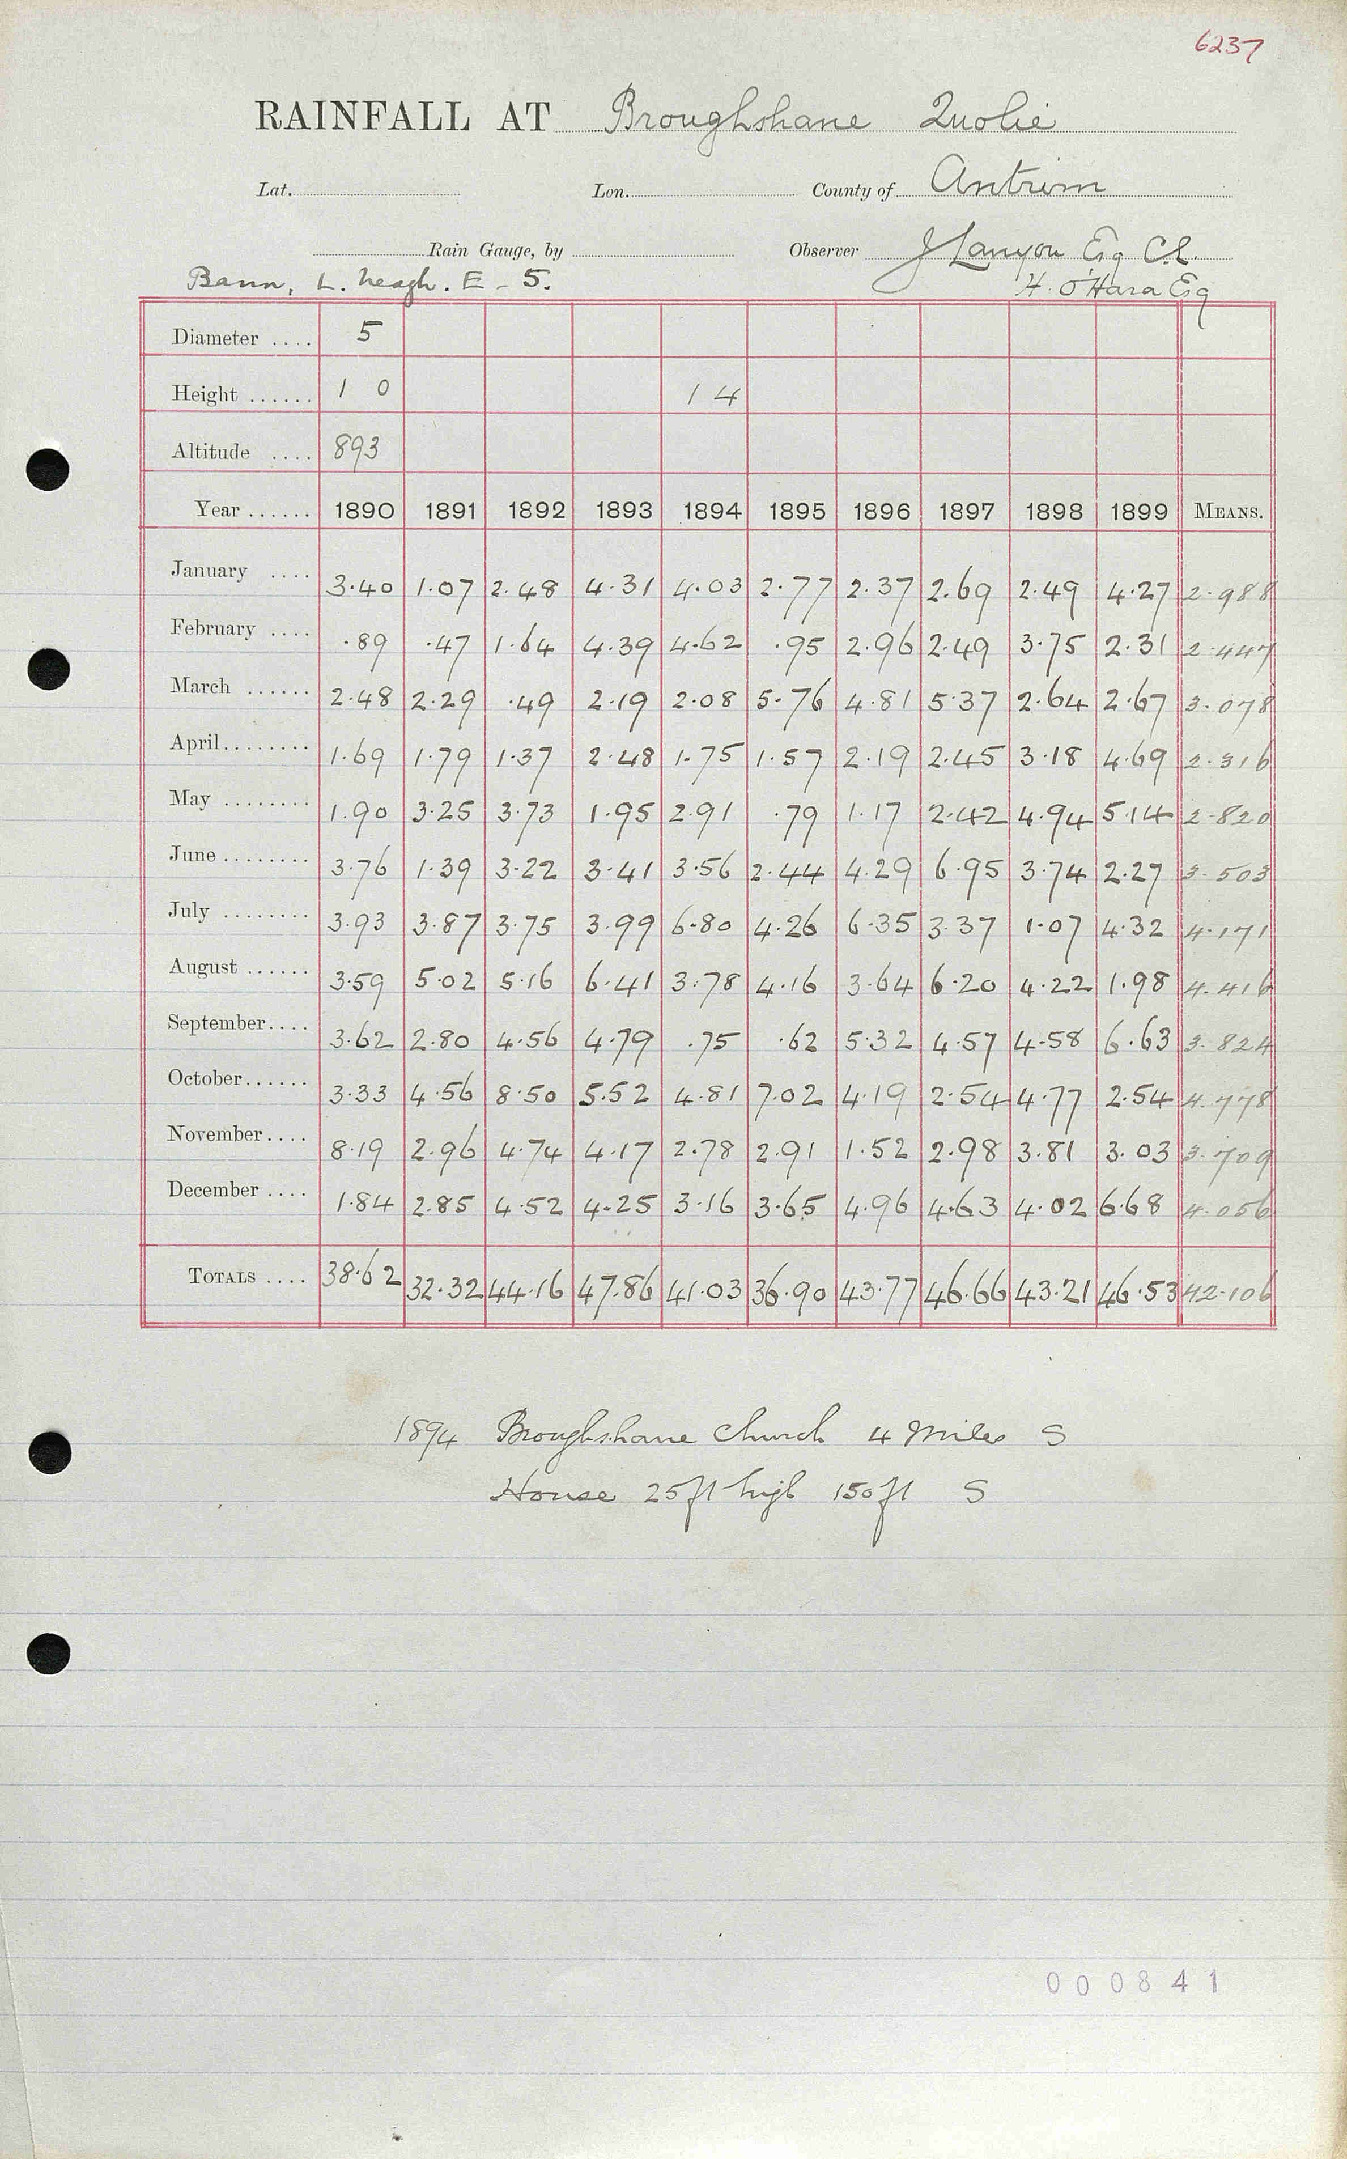 6237
RAINFALL AT Broughshane Quolie
Lat. Lon. County of Antrim
Rain Gauge, by Observer J Lanyon Esq C.E.
Bann, L. Neagh. E - 5. H. O'Hara Esq
Diameter .... 5
Height ...... 1 0 1 4
Altitude .... 893
Year ...... 1890 1891 1892 1893 1894 1895 1896 1897 1898 1899 MEANS.
January .... 3.40 1.07 2.48 4.31 4.03 2.77 2.37 2.69 2.49 4.27 2.988
February .... .89 .47 1.64 4.39 4.62 .95 2.96 2.49 3.75 2.31 2.447
March ...... 2.48 2.29 .49 2.19 2.08 5.76 4.81 5.37 2.64 2.67 3.078
April........ 1.69 1.79 1.37 2.48 1.75 1.57 2.19 2.45 3.18 4.69 2.316
May ........ 1.90 3.25 3.73 1.95 2.91 .79 1.17 2.42 4.94 5.14 2.820
June ........ 3.76 1.39 3.22 3.41 3.56 2.44 4.29 6.95 3.74 2.27 3.503
July ........ 3.93 3.87 3.75 3.99 6.80 4.26 6.35 3.37 1.07 4.32 4.171
August ...... 3.59 5.02 5.16 6.41 3.78 4.16 3.64 6.20 4.22 1.98 4.416
September.... 3.62 2.80 4.56 4.79 .75 .62 5.32 4.57 4.58 6.63 3.824
October...... 3.33 4.56 8.50 5.52 4.81 7.02 4.19 2.54 4.77 2.54 4.778
November.... 8.19 2.96 4.74 4.17 2.78 2.91 1.52 2.98 3.81 3.03 3.709
December .... 1.84 2.85 4.52 4.25 3.16 3.65 4.96 4.63 4.02 6.68 4.056
TOTALS .... 38.62 32.32 44.16 47.86 41.03 36.90 43.77 46.66 43.21 46.53 42.106
1894 Broughshane Church 4 Miles S
House 25ft high 150ft S
000841